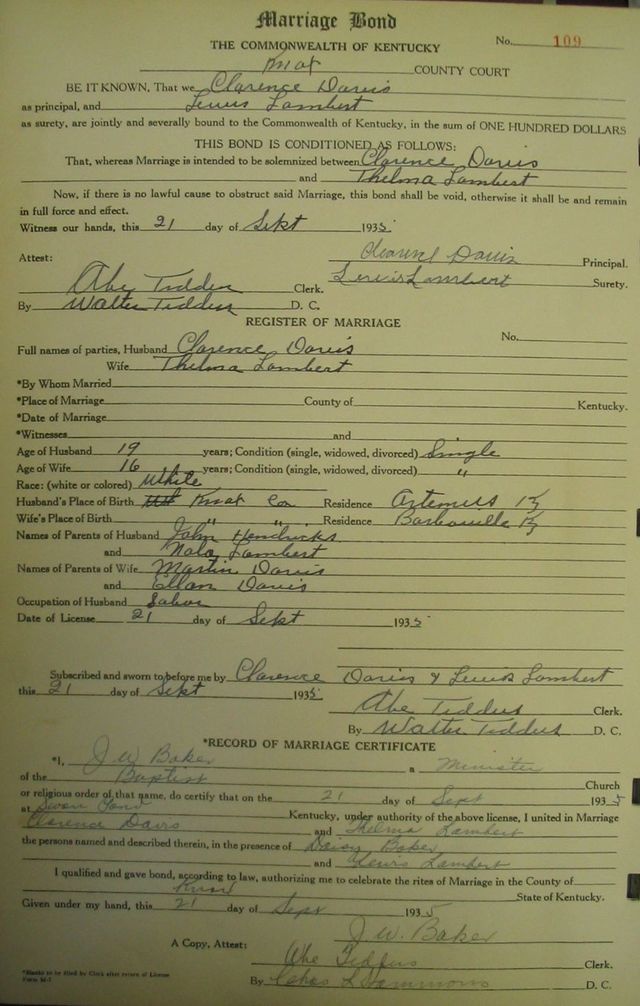 Marriage Bond
THE COMMONWEALTH OF KENTUCKY No. 109
Knox COUNTY COURT
BE IT KNOWN, That we Clarence Davis
as principal, and Lewis Lambert
as surety, are jointly and severally bound to the Commonwealth of Kentucky, in the sum of ONE HUNDRED DOLLARS
THIS BOND IS CONDITIONED AS FOLLOWS:
That, whereas Marriage is intended to be solemnized between Clarence Davis
and Thelma Lambert
Now, if there is no lawful cause to obstruct said Marriage, this bond shall be void, otherwise it shall be and remain
in full force and effect.
Witness our hands, this 21 day of Sept 1935
Attest: Clarence Davis Principal.
Abe Tiddus Clerk. Lewis Lambert Surety.
By Walter Tiddus D. C.
REGISTER OF MARRIAGE
No.
Full names of parties, Husband Clarence Davis
Wife Thelma Lambert
*By Whom Married
*Place of Marriage County of Kentucky.
*Date of Marriage
*Witnesses and
Age of Husband 19 years; Condition (single, widowed, divorced) Single
Age of Wife 16 years; Condition (single, widowed, divorced) "
Race: (white or colored) White
Husband's Place of Birth Knox Co Residence Artemus Ky
Wife's Place of Birth " " Residence Barbourville Ky
Names of Parents of Husband John Hendricks
and Nola Lambert
Names of Parents of Wife Martin Davis
and Ellan Davis
Occupation of Husband Labor
Date of License 21 day of Sept 1935
Subscribed and sworn to before me by Clarence Davis & Lewis Lambert
this 21 day of Sept 1935
Abe Tiddus Clerk.
By Walter Tiddus D. C.
*RECORD OF MARRIAGE CERTIFICATE
*I, J. W. Baker a Minister
of the Baptist Church
or religious order of that name, do certify that on the 21 day of Sept 1935
at Swan Pond Kentucky, under authority of the above license, I united in Marriage
Clarence Davis and Thelma Lambert
the persons named and described therein, in the presence of Daisy Baker
and Lewis Lambert
I qualified and gave bond, according to law, authorizing me to celebrate the rites of Marriage in the County of
Knox State of Kentucky.
Given under my hand, this 21 day of Sept 1935
J. W. Baker
A Copy, Attest: Abe Tiddus Clerk.
By Sammons D. C.
*Blanks to be filled by Clerk after return of License
Form M-7